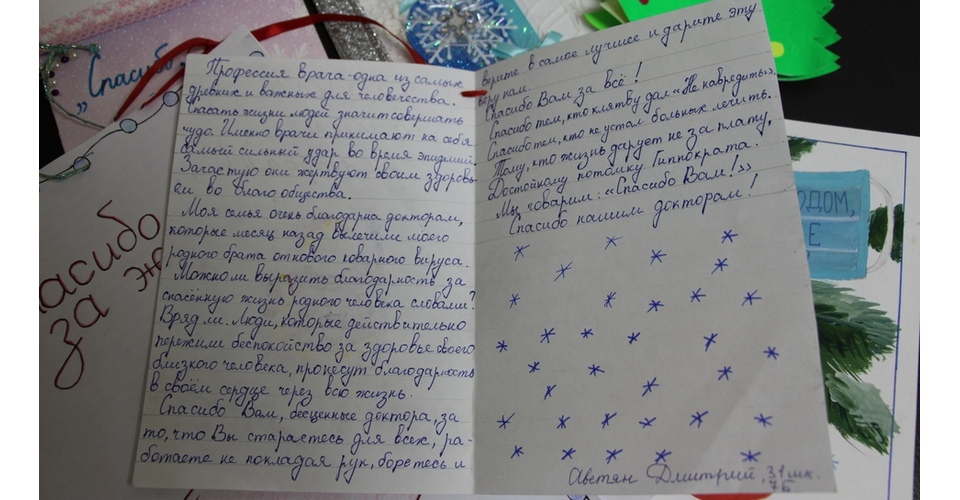 „Спасибо
Спасибо
за
Профессия врача-одна из самых
древних и важных для человечества.
Спасать жизни людей значит совершать
чудо. Именно врачи принимают на себя
самый сильный удар во время эпидемий.
Зачастую они жертвуют своим здоровь-
ем во благо общества.
Моя семья очень благодарна докторам,
которые месяц назад вылечили моего
родного брата от нового коварного вируса.
Можно ли выразить благодарность за
спасённую жизнь родного человека словами?
Вряд ли. Люди, которые действительно
пережили беспокойство за здоровье своего
близкого человека, пронесут благодарность
в своём сердце через всю жизнь.
Спасибо Вам, бесценные доктора, за
то, что Вы стараетесь для всех, ра-
ботаете не покладая рук, боретесь и
верите в самое лучшее и дарите эту
веру нам.
Спасибо Вам за всё!
Спасибо тем, кто клятву дал «Не навредить».
Спасибо тем, кто не устал больных лечить.
Тому, кто жизнь дарует не за плату,
Достойному потомку Гиппократа.
Мы говорим: «Спасибо Вам!»
Спасибо нашим докторам!
Аветян Дмитрий, 31 шк.
7Б